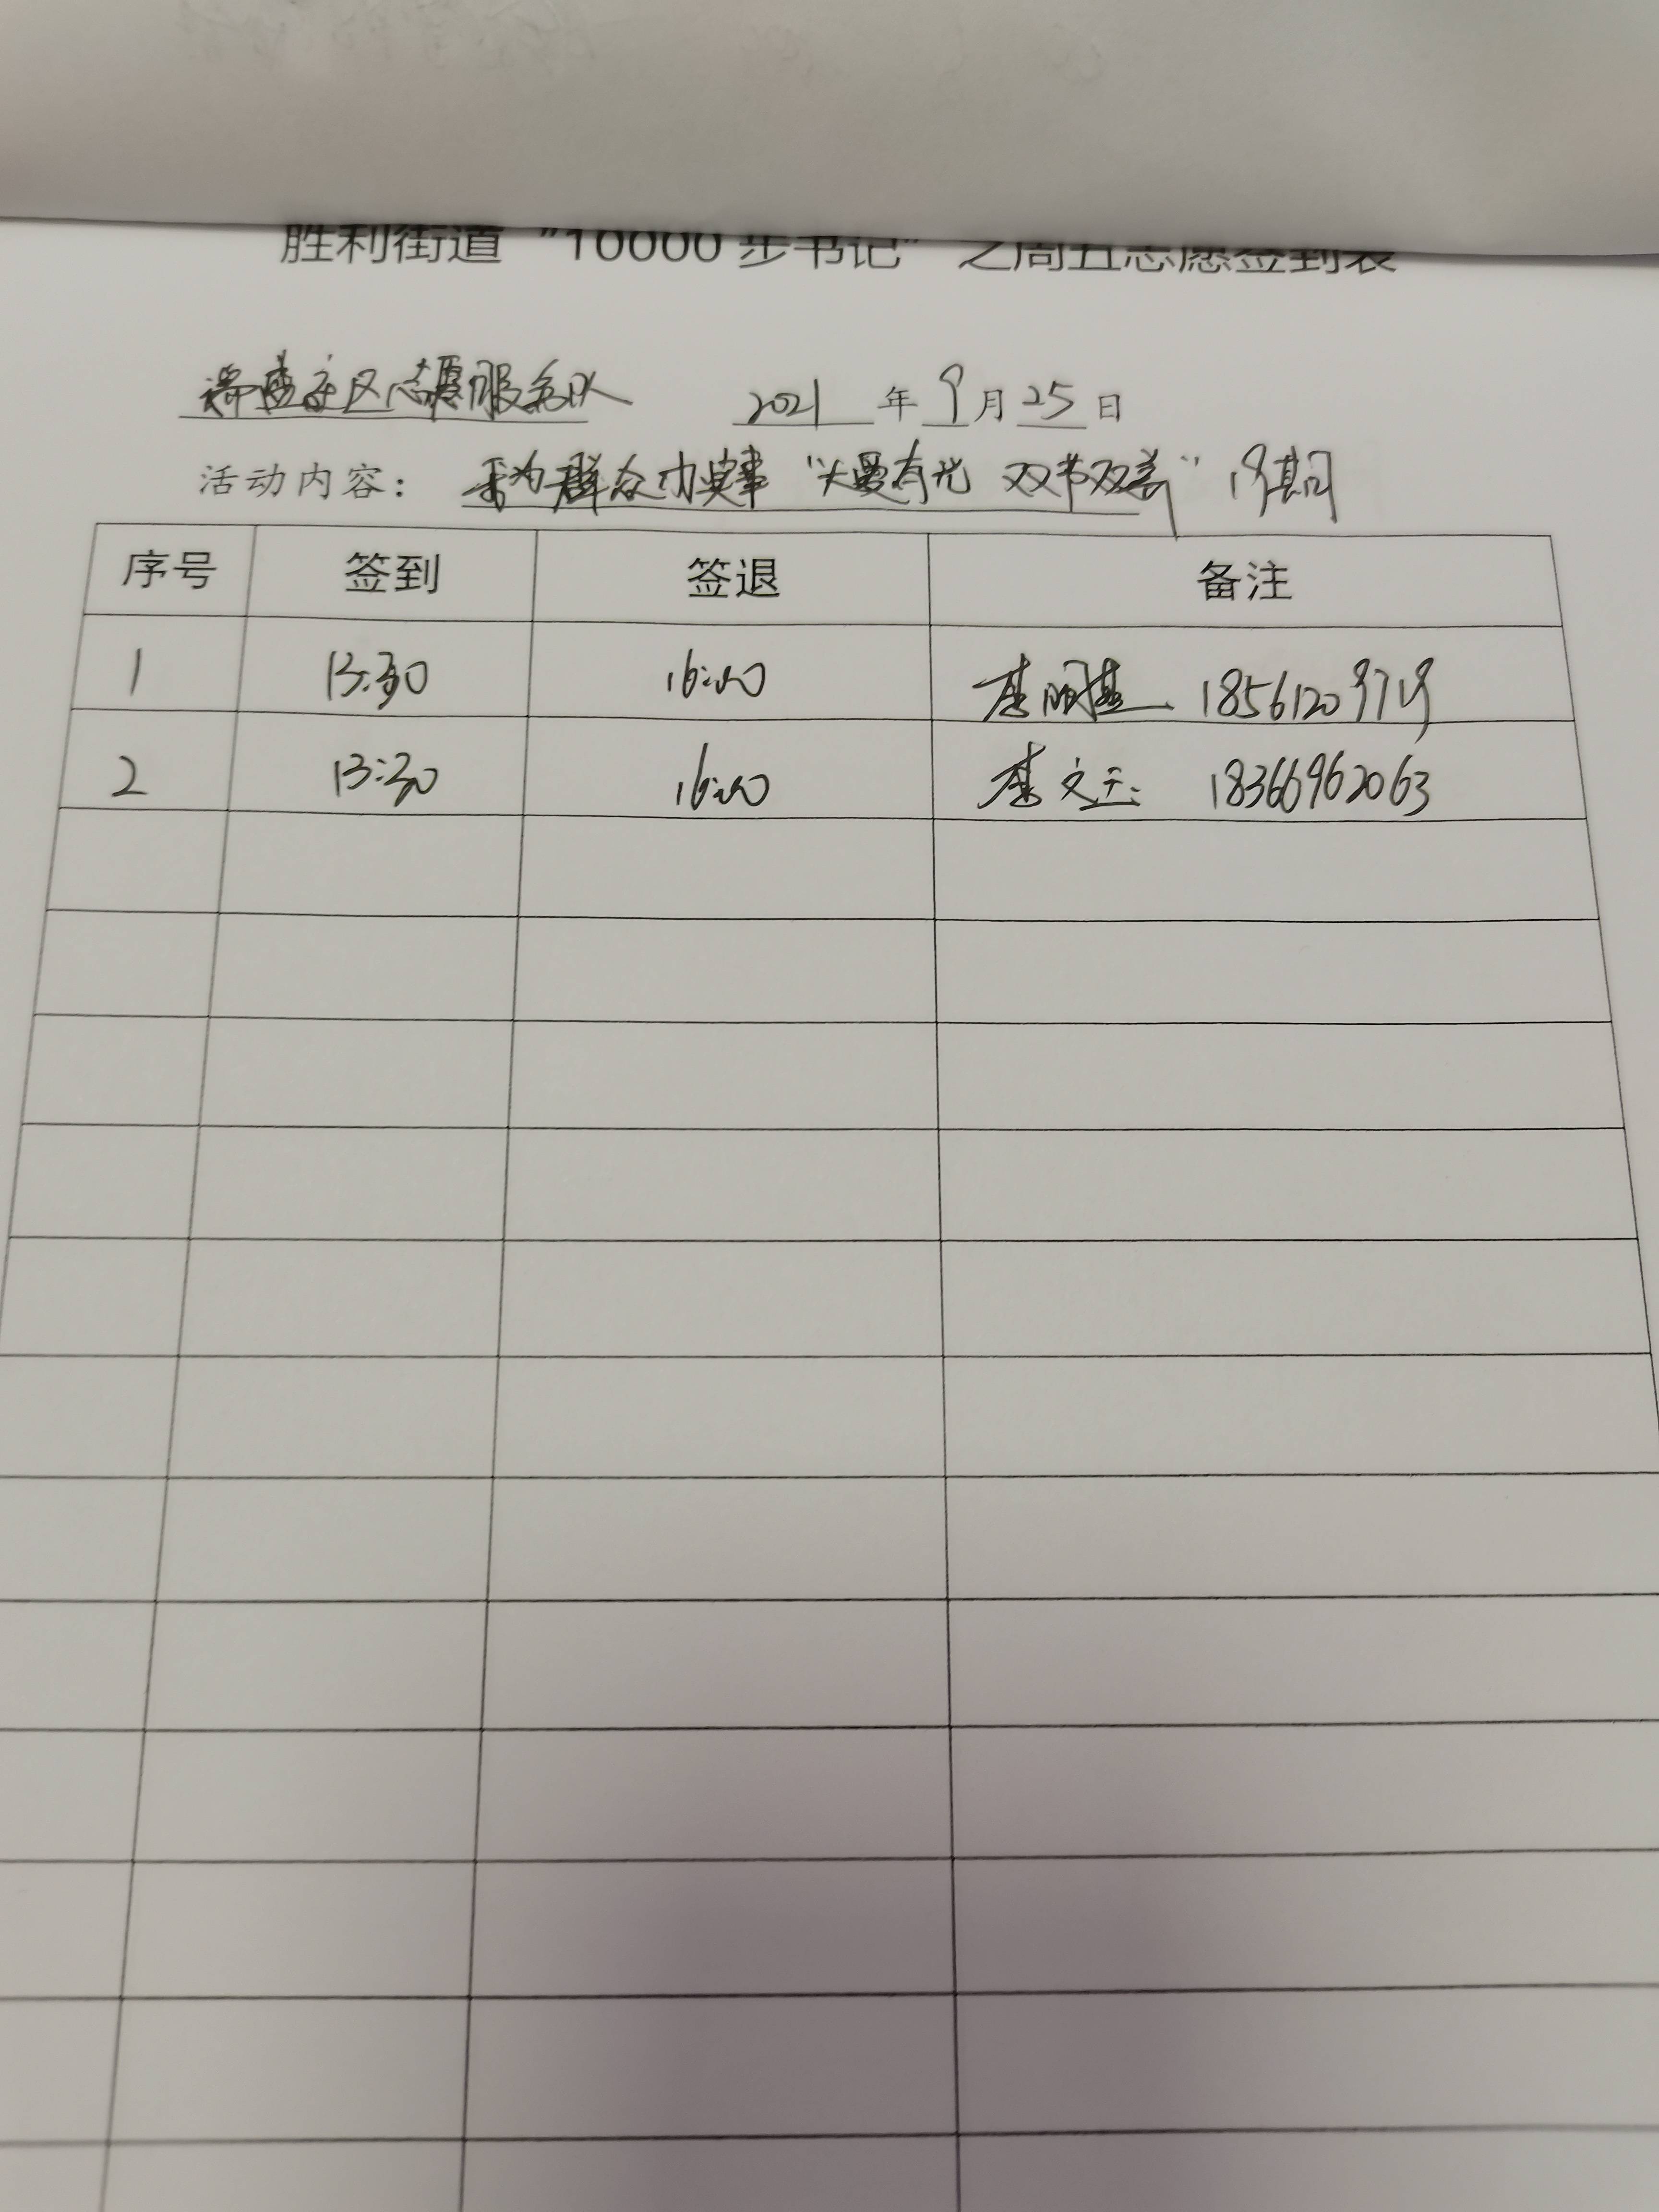 胜利街道“10000步书记”之周五志愿签到表
社区志愿服务队 2021年9月25日
活动内容: 为群众办实事“ 有光 双节双 ” 19期
序号 签到 签退 备注
1 13:30 16:00 李丽 18561209719
2 13:30 16:00 李文 18366962063